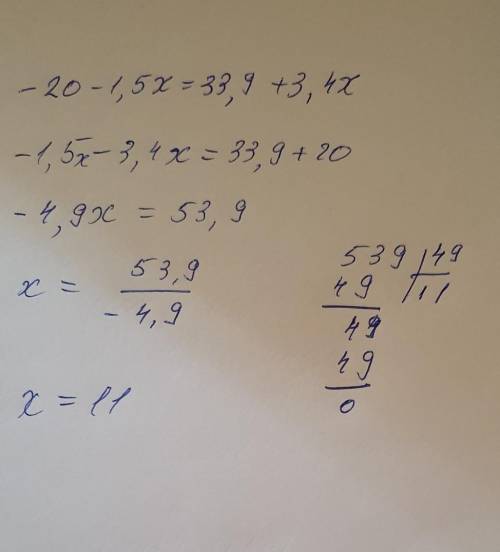 -20-1,5x=33,9+3,4x
-1,5x-3,4x=33,9+20
-4,9x=53,9
x= 53,9
-4,9
x=11
539 49
49 11
49
49
0